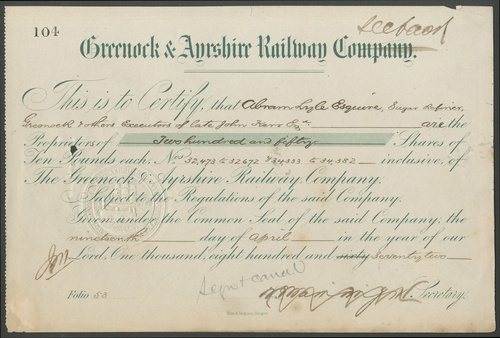 104
See back
Greenock & Ayrshire Railway Company.
This is to Certify, that Abram Lyle Esquire, Sugar Refiner,
Greenock & others Executors of late John Kerr Esqre are the
Proprietors of Two hundred and fifty Shares of
Ten Pounds each, Nos 32,473 to 32672 & 34,333 to 34,382 inclusive, of
The Greenock & Ayrshire Railway Company,
Subject to the Regulations of the said Company.
Given under the Common Seal of the said Company, the
nineteenth day of April in the year of our
Lord, One thousand, eight hundred and sixty Seventy two
Folio 50
Secretary.